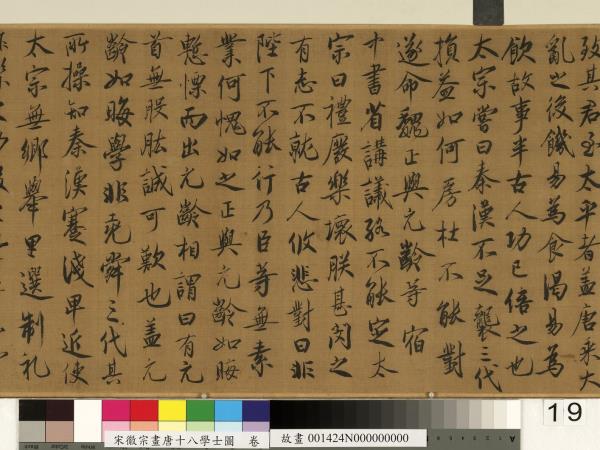 致其君至太平者盖唐承大
亂之後饑易為食渴易為
飲故事半古人功已倍之也
太宗嘗曰秦漢不足襲三代
損益如何房杜不能對
遂命魏正與元齡等宿
中書省講議終不能定太
宗曰禮廢樂壞朕甚閔之
有志不就古人攸悲對曰非
陛下不能行乃臣等無素
業何愧如之正與元齡如晦
慙慄而出元齡相謂曰有元
首無股肱誠可歎也盖元
齡如晦學非堯舜三代其
所操知秦漢蹇淺卑近使
太宗無鄉舉里選制礼
宋徽宗畫唐十八學士圖 卷
故畫 001424N000000000
19
A